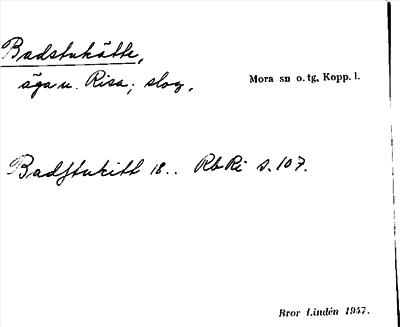 Badstukätte,
äga u. Risa; skog.
Mora sn o. tg, Kopp. l.
Badstukitt 18.. RbRi s. 107.
Bror Lindén 1947.